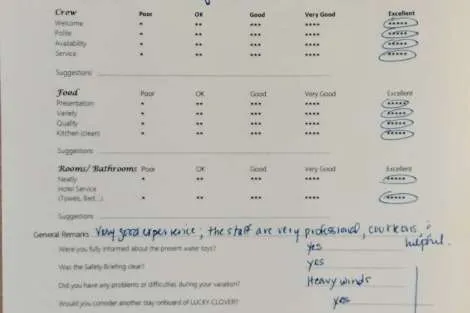 Crew Poor OK Good Very Good Excellent
Welcome * ** *** **** *****
Polite * ** *** **** *****
Availability * ** *** **** *****
Service * ** *** **** *****
Suggestions:
Food Poor OK Good Very Good Excellent
Presentation * ** *** **** *****
Variety * ** *** **** *****
Quality * ** *** **** *****
Kitchen (clean) * ** *** **** *****
Suggestions:
Rooms/ Bathrooms Poor OK Good Very Good Excellent
Neatly
Hotel Service
(Towels, Bed...) * ** *** **** *****
Suggestions:
General Remarks Very good experience; the staff are very professional, courteous, &
helpful.
Were you fully informed about the present water toys? yes
Was the Safety-Briefing clear? yes
Did you have any problems or difficulties during your vacation? Heavy winds
Would you consider another stay onboard of LUCKY CLOVER? yes